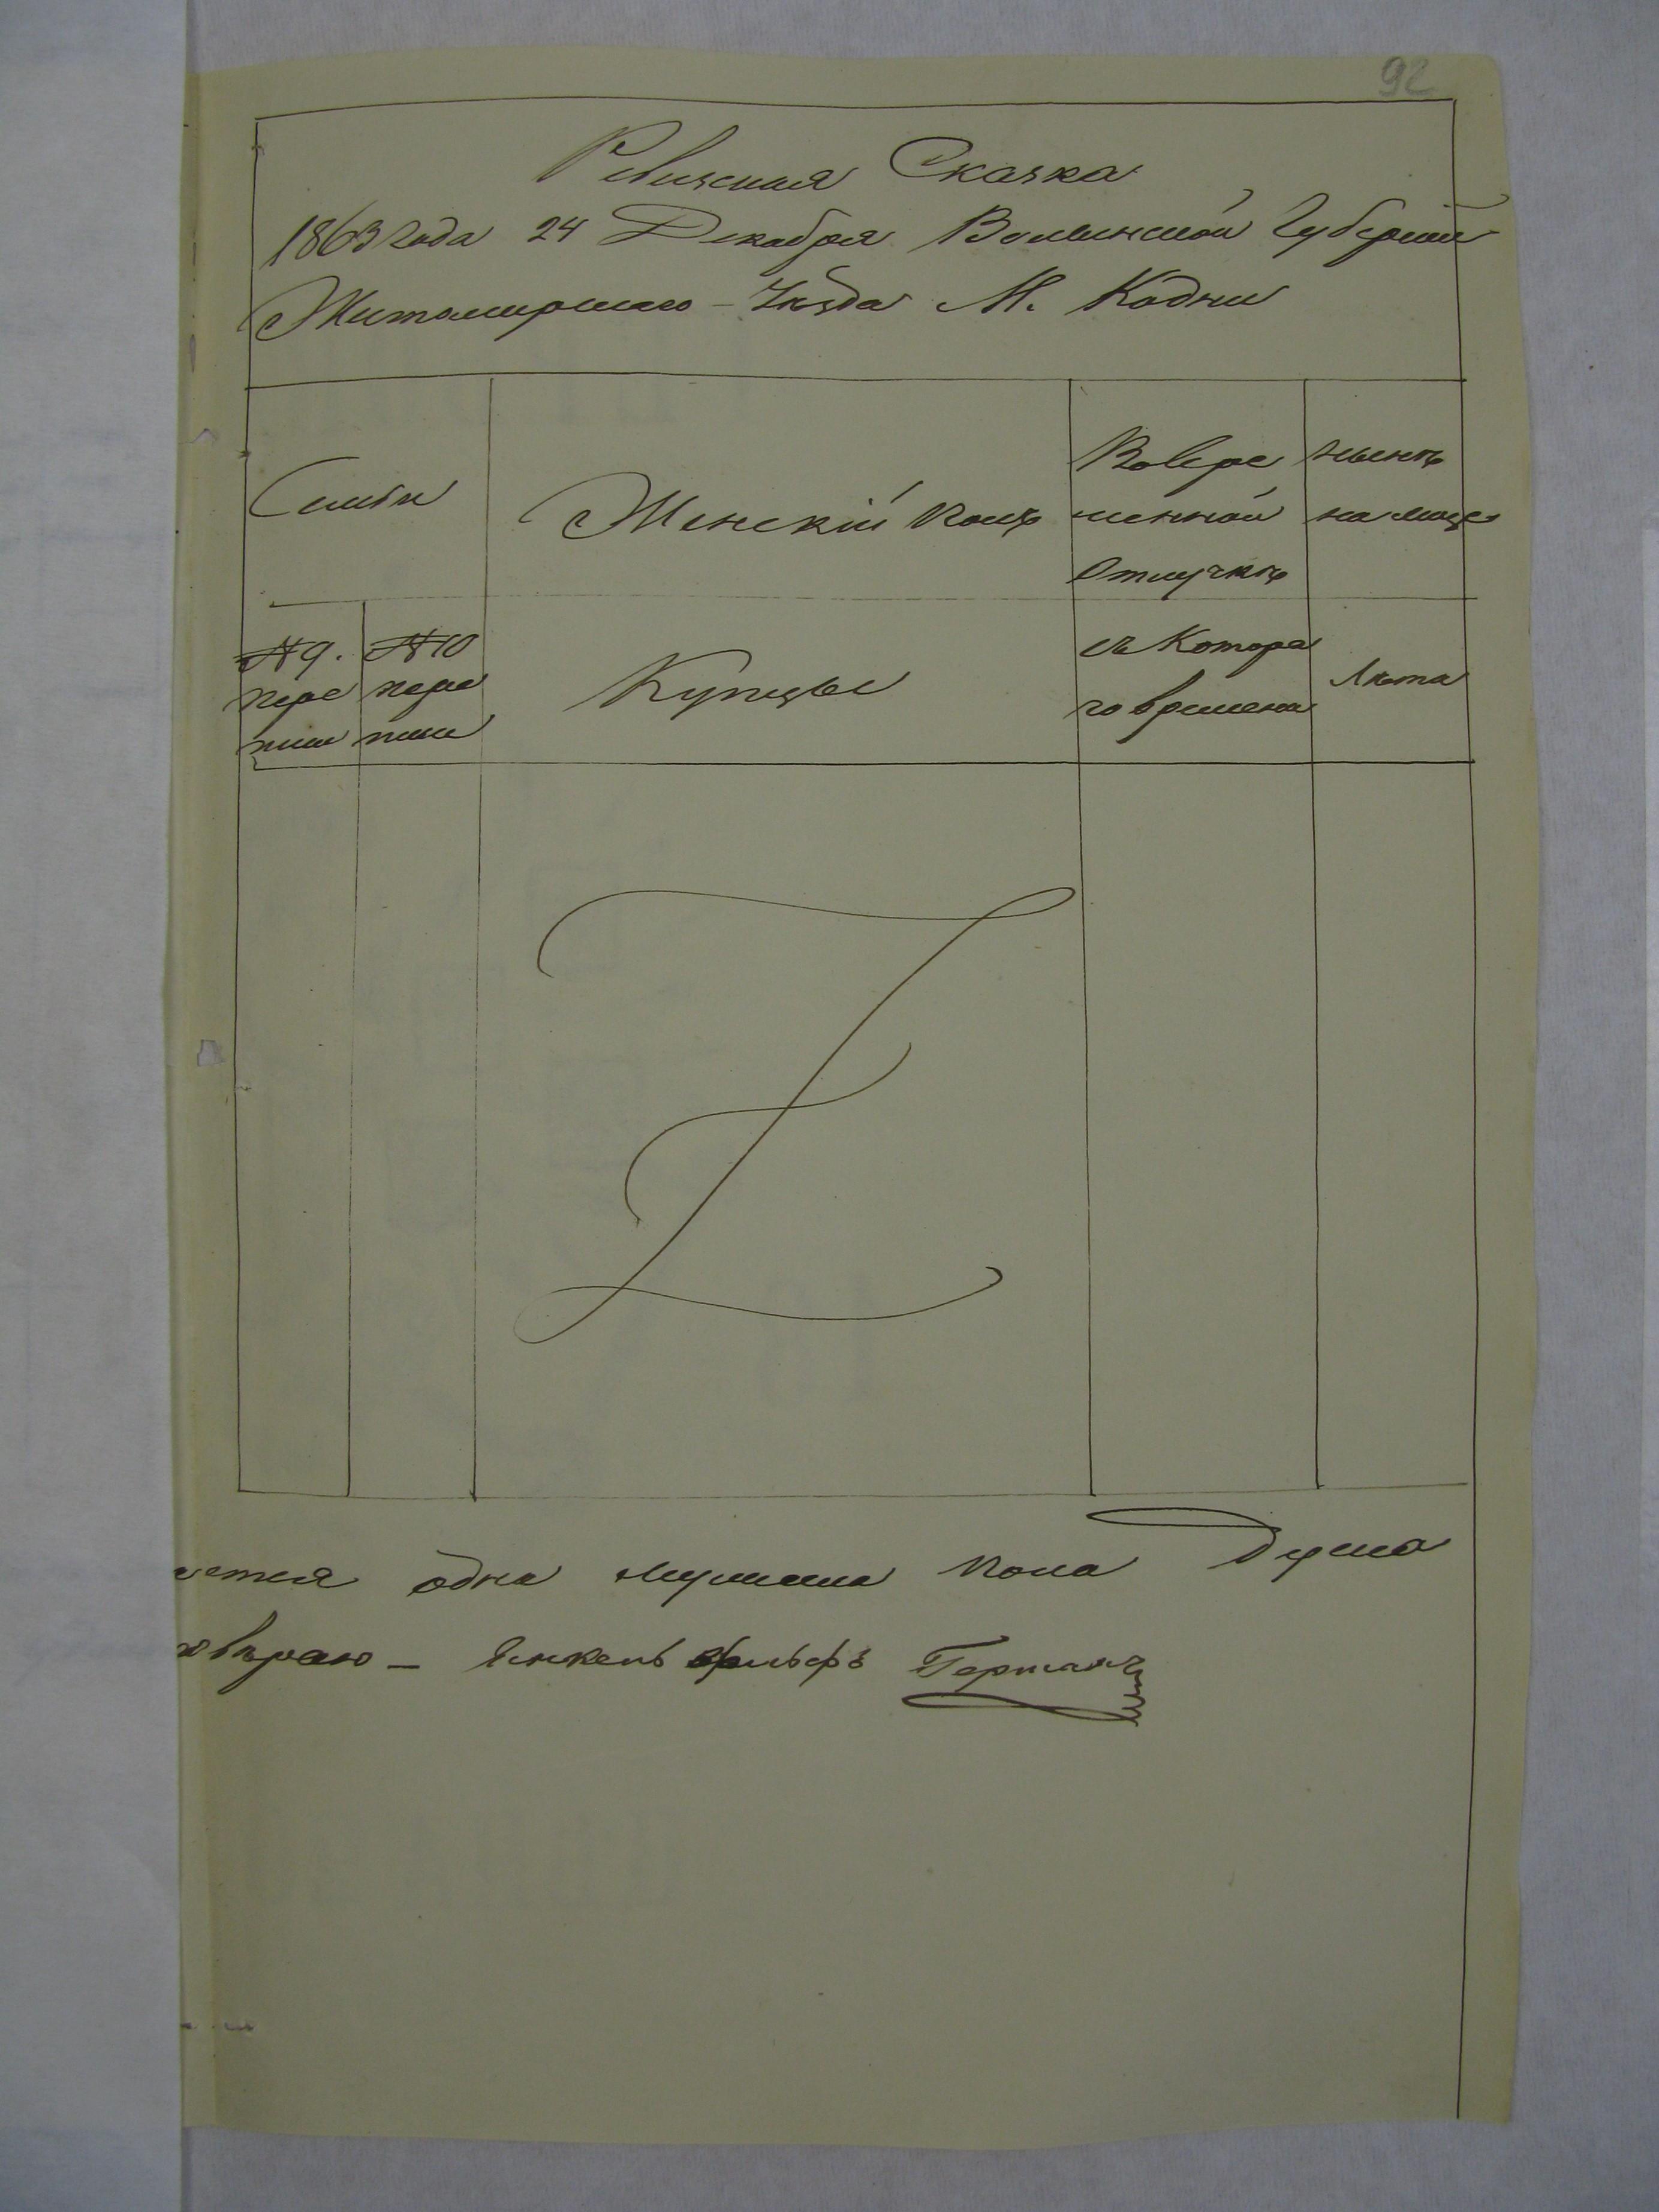 92
Ревизская Сказка
1863 года 24 Декабря Волынской Губернии
Житомирскаго Уезда М. Кодни
Семьи
Женскій полъ
Вовре
менной
отлучкѣ
нынѣ
на лице
№9.
пере
писи
№10
пере
писи
Купцы
съ Котора
го времени
Лѣта
одна мужеска пола душа
Янкель Вольфъ Герман